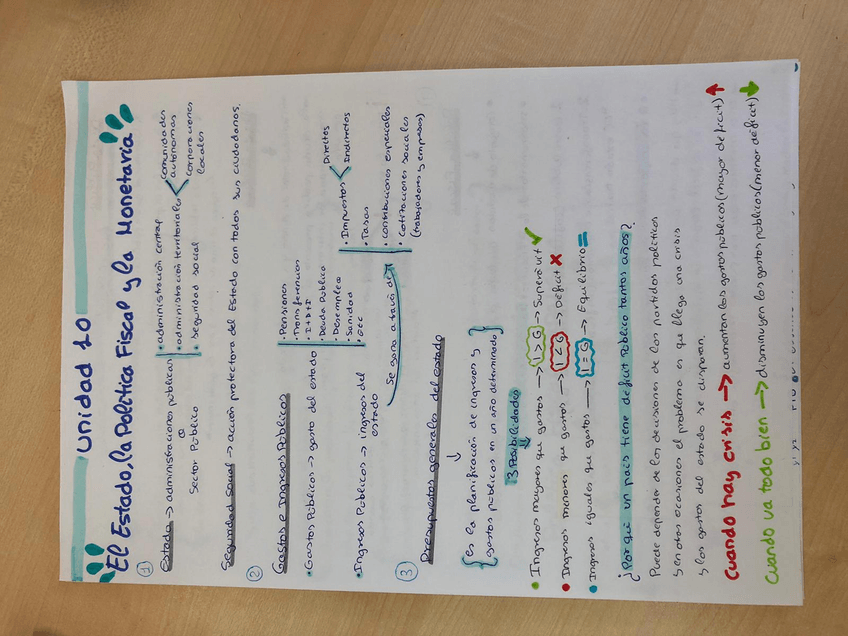 Unidad 10
El Estado, la Política Fiscal y la Monetaria
①
Estado → administraciones públicas
o
Sector Público
• administración central
• administración territoriales
• Seguridad social
comunidades autónomas
corporaciones locales
Seguridad social → acción protectora del Estado con todos sus ciudadanos.
②
Gastos e Ingresos Públicos
• Gastos Públicos → gasto del estado
• Pensiones
• Transferencias
• I+D+I
• Deuda Pública
• Desempleo
• Sanidad
• Ingresos Públicos → ingresos del
estado
Se gana a través de
• Impuestos
Directos
Indirectos
• Tasas
• contribuciones especiales
• Cotizaciones sociales
(trabajadores y empresas)
③
Presupuestos generales del estado
↓
{Es la planificación de ingresos y
gastos públicos en un año determinado}
3 Posibilidades
↓
• Ingresos mayores que gastos → I > G → Superávit ✓
• Ingresos menores que gastos → I < G → Déficit ✗
• Ingresos iguales que gastos → I = G → Equilibrio =
¿Por qué un país tiene déficit público tantos años?
Puede depender de las decisiones de los partidos políticos
y en otras ocasiones el problema es que llega una crisis
y los gastos del estado se disparan.
Cuando hay crisis → aumentan los gastos públicos (mayor déficit) ↑
Cuando va todo bien → disminuyen los gastos públicos (menor déficit) ↓